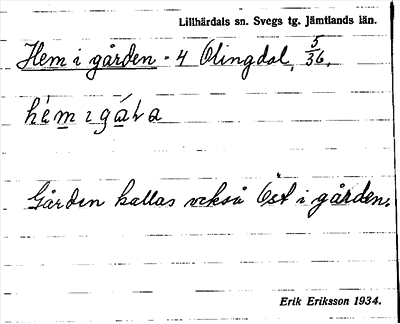 Lillhärdals sn. Svegs tg. Jämtlands län.
Hem i gården - 4 Olingdal, 5/36.
Gården kallas också Öst i gården.
Erik Eriksson 1934.